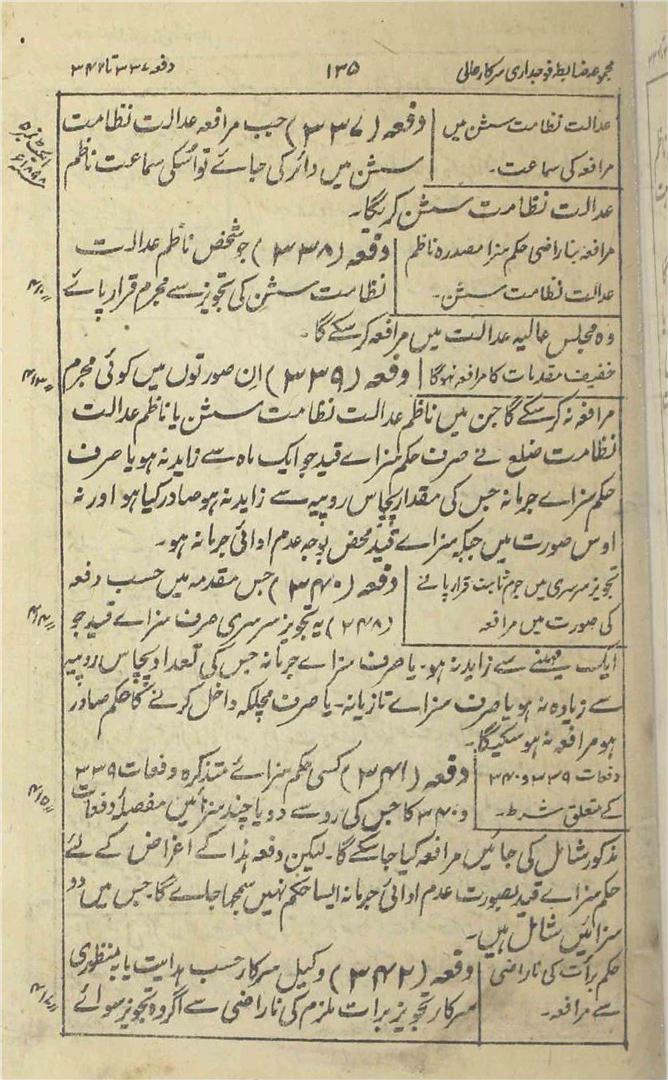 مجموعہ ضابطہ فوجداری سرکار عالی
۱۳۵
دفعہ ۳۳۷ تا ۳۴۲
عدالت نظامت سشن میں
مرافعہ کی سماعت۔
دفعہ (۳۳۷) جب مرافعہ عدالت نظامت
سشن میں دائر کی جائے تو اُسکی سماعت ناظم
عدالت نظامت سشن کریگا۔
مرافعہ بناراضی حکم سزا مصدرہ ناظم
عدالت نظامت سشن۔
دفعہ (۳۳۸) جو شخص ناظم عدالت
نظامت سشن کی تجویز سے مجرم قرار پائے
وہ مجلس عالیہ عدالت میں مرافعہ کر سکے گا۔
خفیف مقدمات کا مرافعہ نہوگا
دفعہ (۳۳۹) اِن صورتوں میں کوئی مجرم
مرافعہ نہ کر سکے گا جن میں ناظم عدالت نظامت سشن یا ناظم عدالت
نظامت ضلع نے صرف حکم سزاے قید جو ایک ماہ سے زاید نہ ہو یا صرف
حکم سزاے جرمانہ جس کی مقدار پچاس روپیہ سے زاید نہ ہو صادر کیا ہو اور نہ
اوس صورت میں جبکہ سزاے قید محض بوجہ عدم ادائی جرمانہ ہو۔
تجویز سرسری میں جرم ثابت قرار پانے
کی صورت میں مرافعہ
دفعہ (۳۴۰) جس مقدمہ میں حسب دفعہ
(۲۴۸) بہ تجویز سرسری صرف سزاے قید جو
ایک مہینے سے زاید نہ ہو۔ یا صرف سزاے جرمانہ جس کی تعداد پچاس روپیہ
سے زیادہ نہ ہو یا صرف سزاے تازیانہ۔ یا صرف مچلکہ داخل کرنے کا حکم صادر
ہو مرافعہ نہ ہو سکیگا۔
دفعات ۳۳۹ و ۳۴۰
کے متعلق شرط۔
دفعہ (۳۴۱) کسی حکم سزائے متذکرہ دفعات ۳۳۹
و ۳۴۰ کا جس کی رو سے دو یا چند سزائیں مفصلۂ دفعات
مذکور شامل کی جائیں مرافعہ کیا جا سکے گا۔ لیکن دفعہ ہذا کے اغراض کے لئے
حکم سزاے قید بصورت عدم ادائی جرمانہ ایسا حکم نہیں سمجھا جاے گا جس میں دو
سزائیں شامل ہیں۔
حکم برأت کی ناراضی
سے مرافعہ۔
دفعہ (۳۴۲) وکیل سرکار حسب ہدایت یا بہ منظوری
سرکار تجویز برات ملزم کی ناراضی سے اگر وہ تجویز سوائے